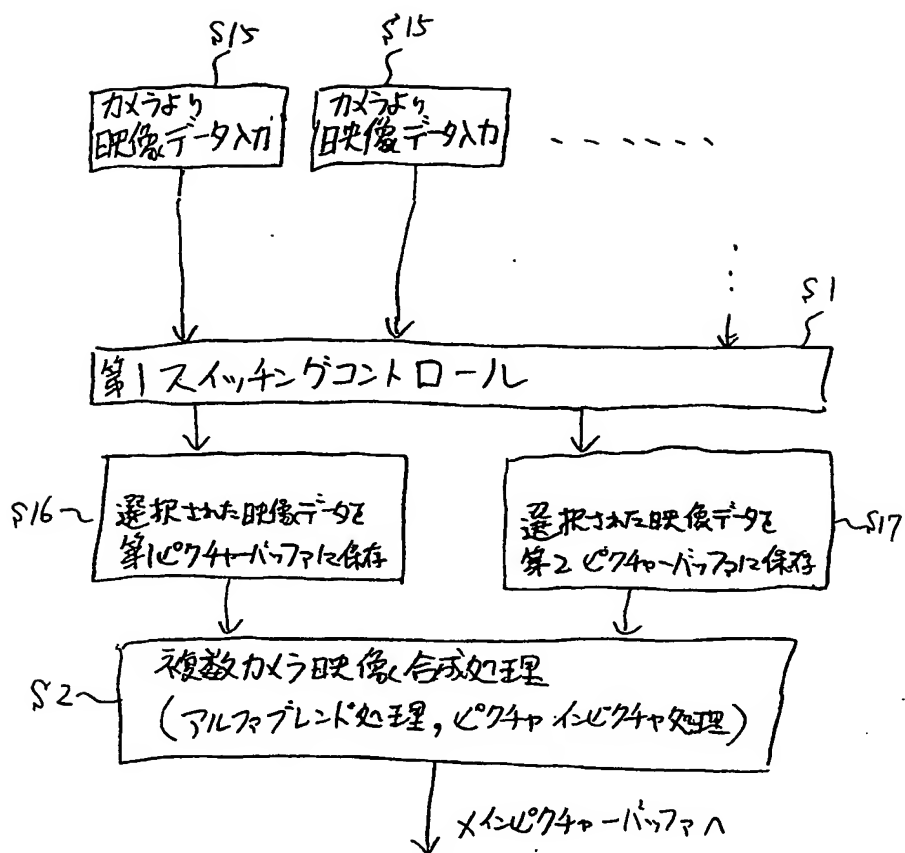 S15
S15
カメラより
映像データ入力
カメラより
映像データ入力
S1
第1スイッチングコントロール
S16
選択された映像データを
第1ピクチャーバッファに保存
選択された映像データを
第2ピクチャーバッファに保存
S17
S2
複数カメラ映像合成処理
(アルファブレンド処理,ピクチャインピクチャ処理)
メインピクチャーバッファへ